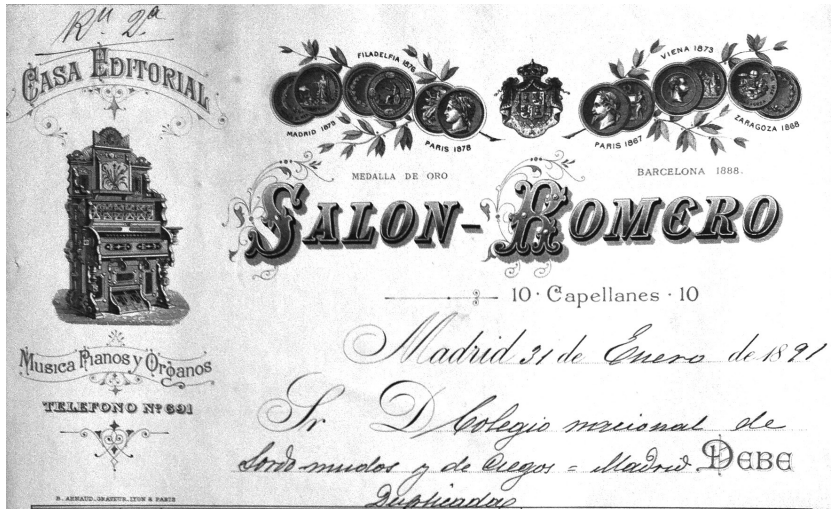 Rn 2ª
CASA EDITORIAL
Musica Pianos y Organos
TELEFONO Nº 691
R. ARMAUD. GRAVEUR. LYON & PARIS
FILADELFIA 1876
MADRID 1873
PARIS 1878
VIENA 1873
PARIS 1867
ZARAGOZA 1868
MEDALLA DE ORO BARCELONA 1888.
SALON-ROMERO
10 · Capellanes · 10
Madrid 31 de Enero de 1891
Sr D Colegio nacional de
Sordo-mudos y de Ciegos = Madrid. DEBE
Duplicada